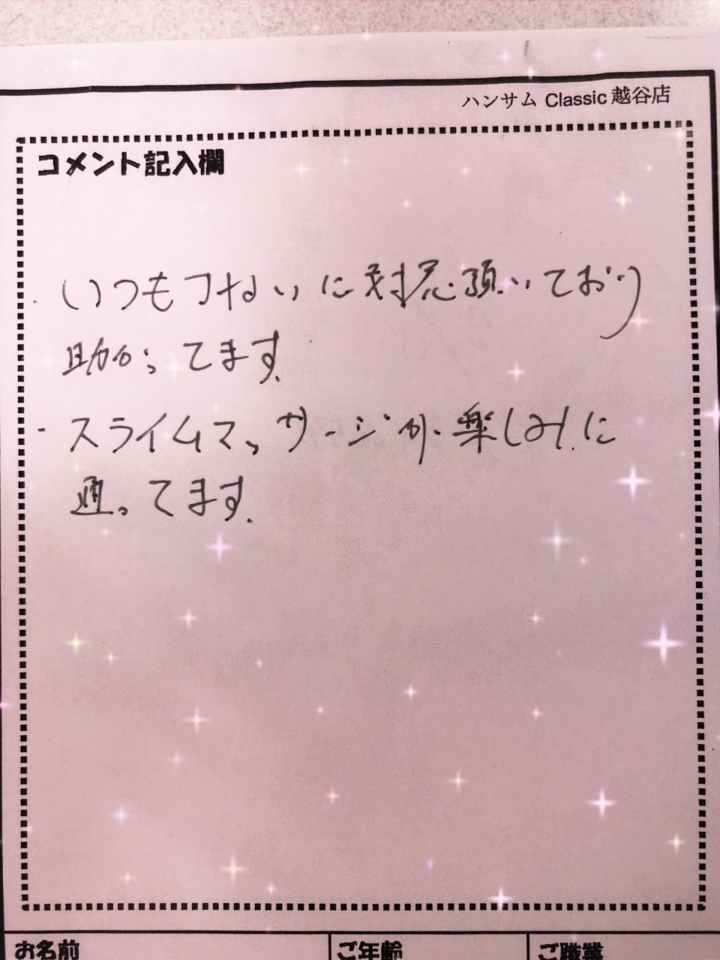 ハンサム Classic 越谷店
コメント記入欄
・いつもていねいに対応頂いており
助かってます。
・スライムマッサージが楽しみに
通ってます。
お名前
ご年齢
ご職業